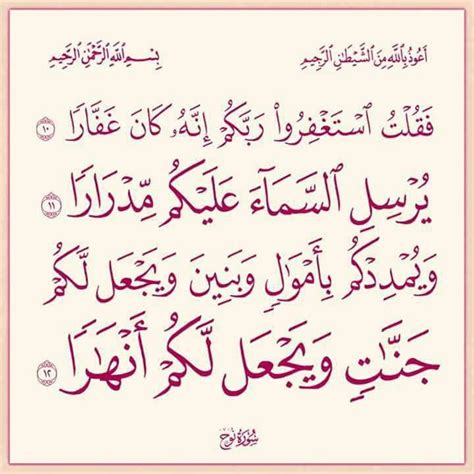 أَعُوذُ بِاللَّهِ مِنَ الشَّيْطَانِ الرَّجِيمِ بِسْمِ اللَّهِ الرَّحْمَٰنِ الرَّحِيمِ
فَقُلْتُ ٱسْتَغْفِرُوا۟ رَبَّكُمْ إِنَّهُۥ كَانَ غَفَّارًا ١٠
يُرْسِلِ ٱلسَّمَآءَ عَلَيْكُم مِّدْرَارًا ١١
وَيُمْدِدْكُم بِأَمْوَٰلٍ وَبَنِينَ وَيَجْعَل لَّكُمْ
جَنَّٰتٍ وَيَجْعَل لَّكُمْ أَنْهَٰرًا ١٢
سُورَةُ نُوح